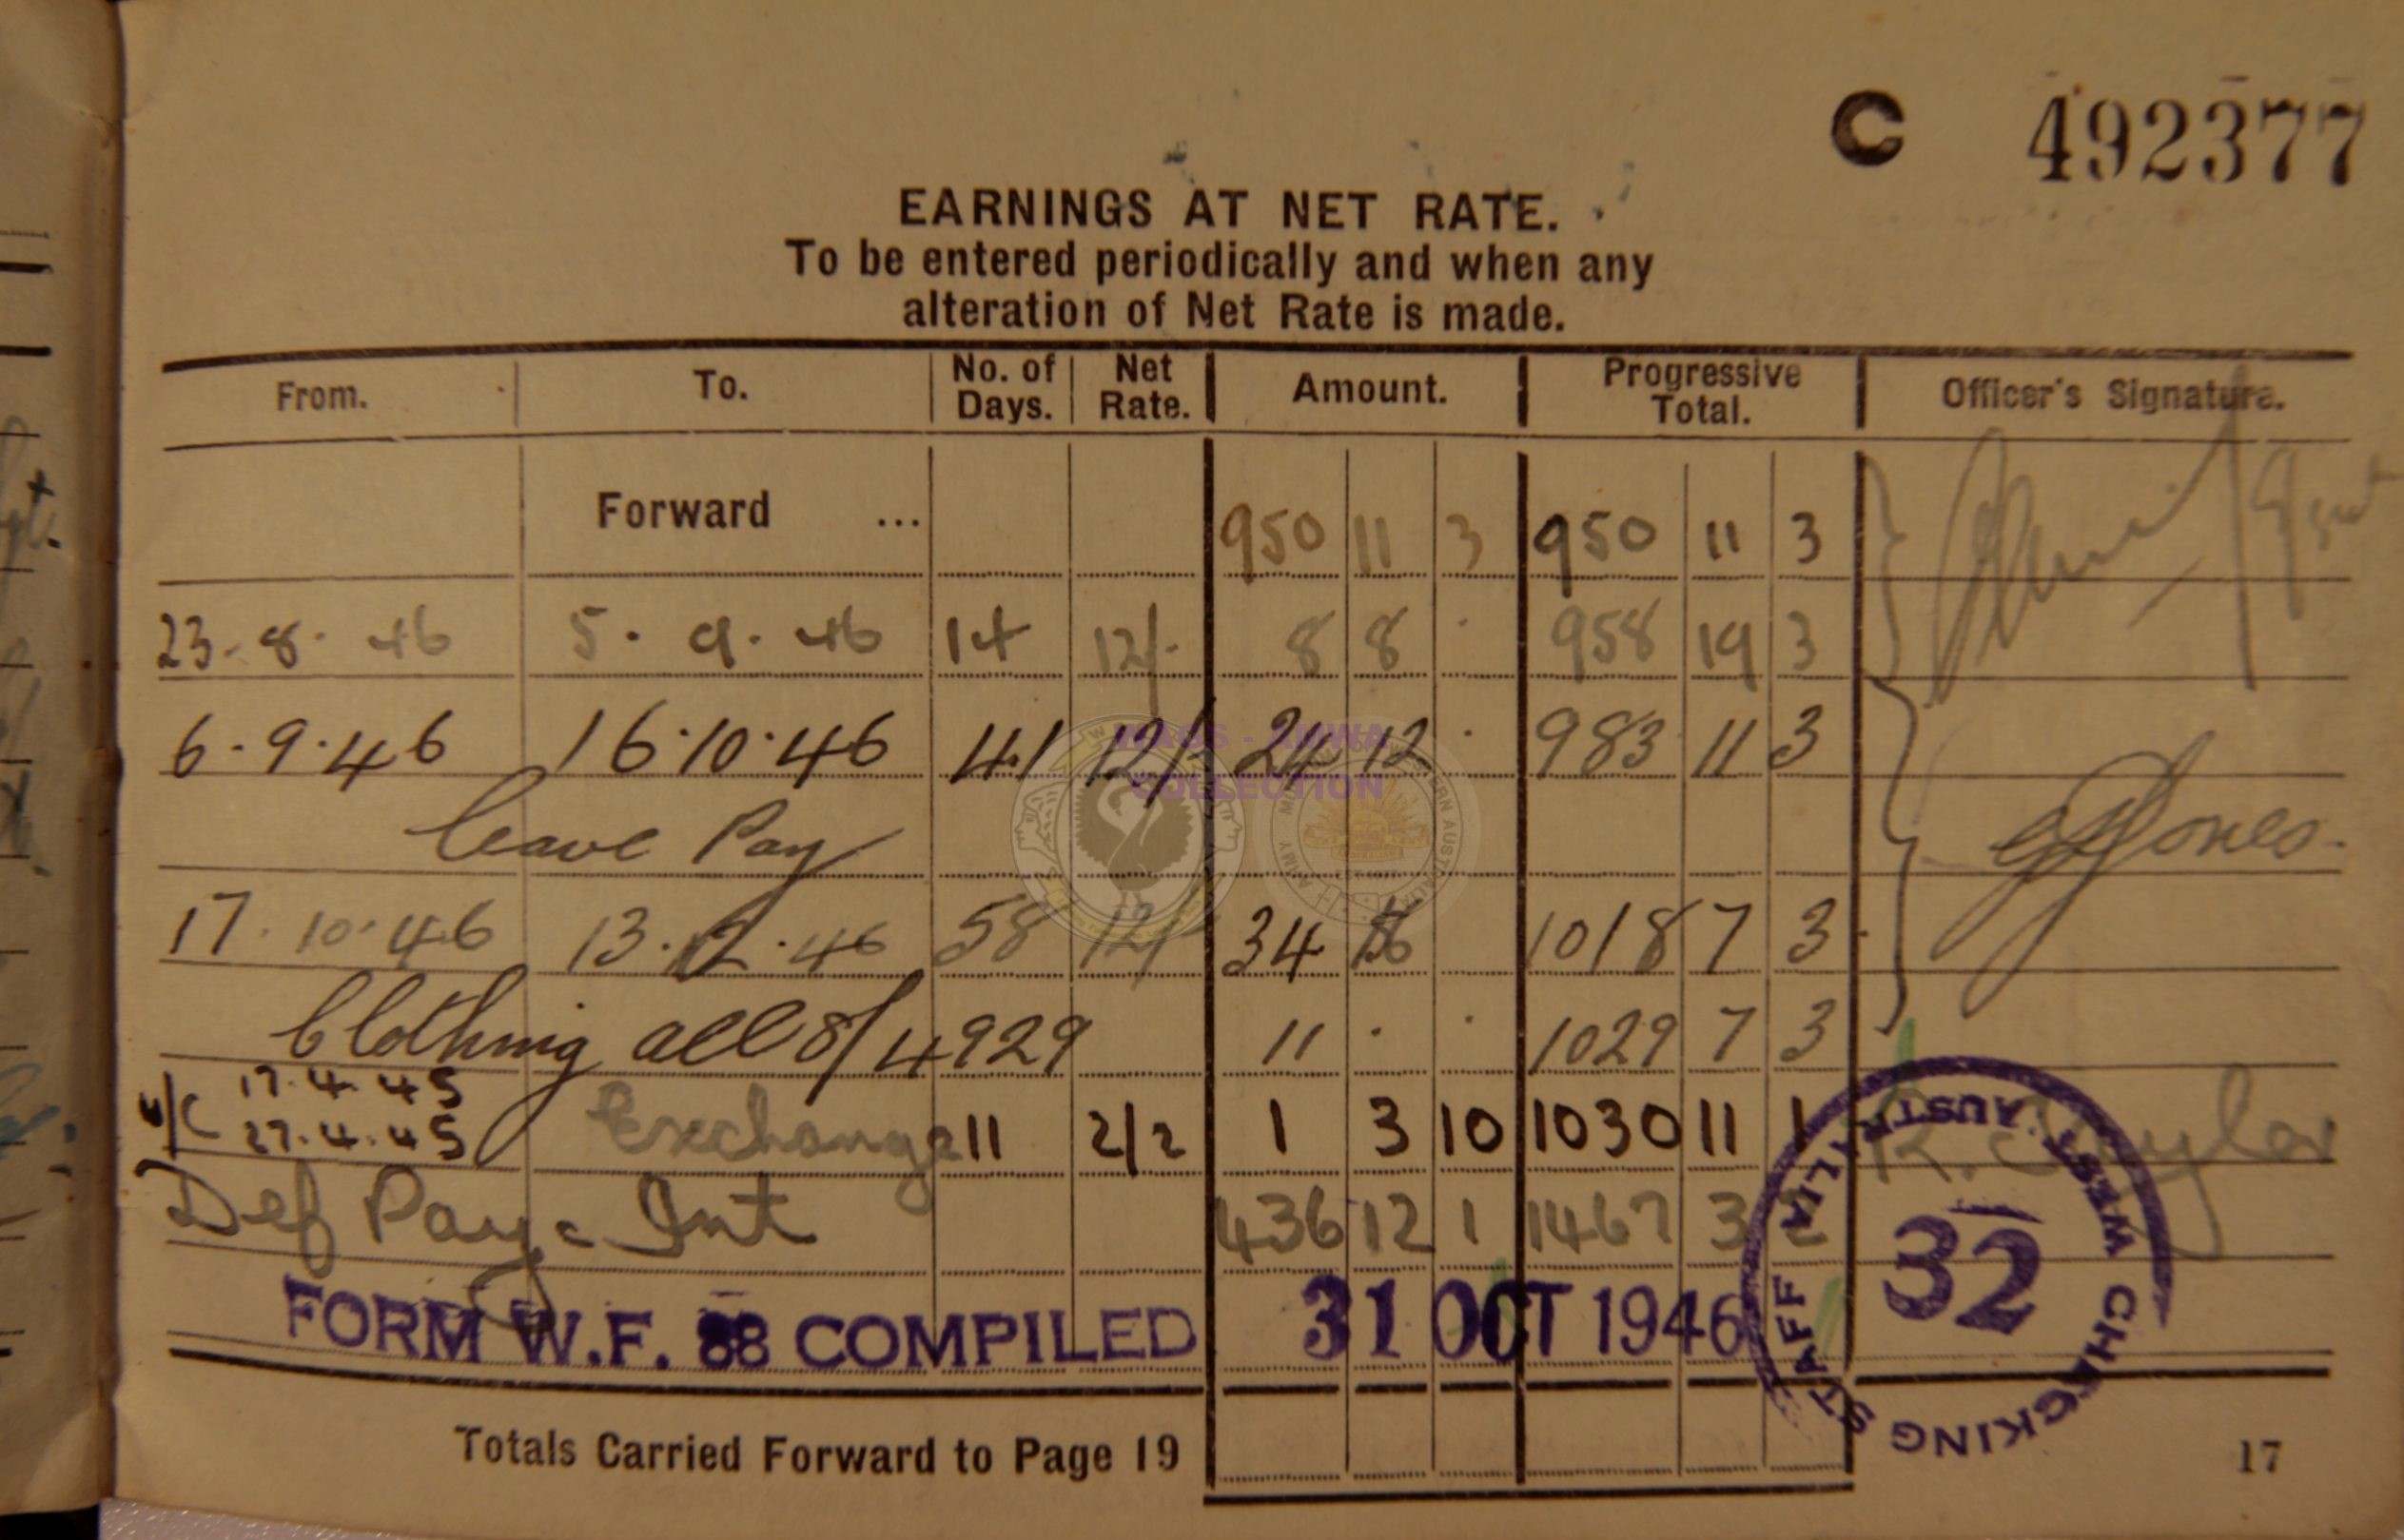 C 492377
EARNINGS AT NET RATE.
To be entered periodically and when any
alteration of Net Rate is made.
From. To. No. of Days. Net Rate. Amount. Progressive Total. Officer's Signature.
Forward ... 950 11 3 950 11 3
23-8-46 5.9.46 14 12/- 8 8 . 958 19 3
6-9.46 16.10.46 41 12/- 24 12 . 983 11 3
Leave Pay Jones.
17.10.46 13.12.46 58 12/ 34 16 1018 7 3
Clothing all 8/4929 11 . . 1029 7 3
17.4.45
27.4.45 Exchange 11 2/2 1 3 10 1030 11 1
Def Pay - Int 436 12 1 1467 3 2
FORM W.F. 88 COMPILED 31 OCT 1946
CHECKING STAFF WEST. AUSTRALIA
32
Totals Carried Forward to Page 19
17
WAGS - AMWA
COLLECTION